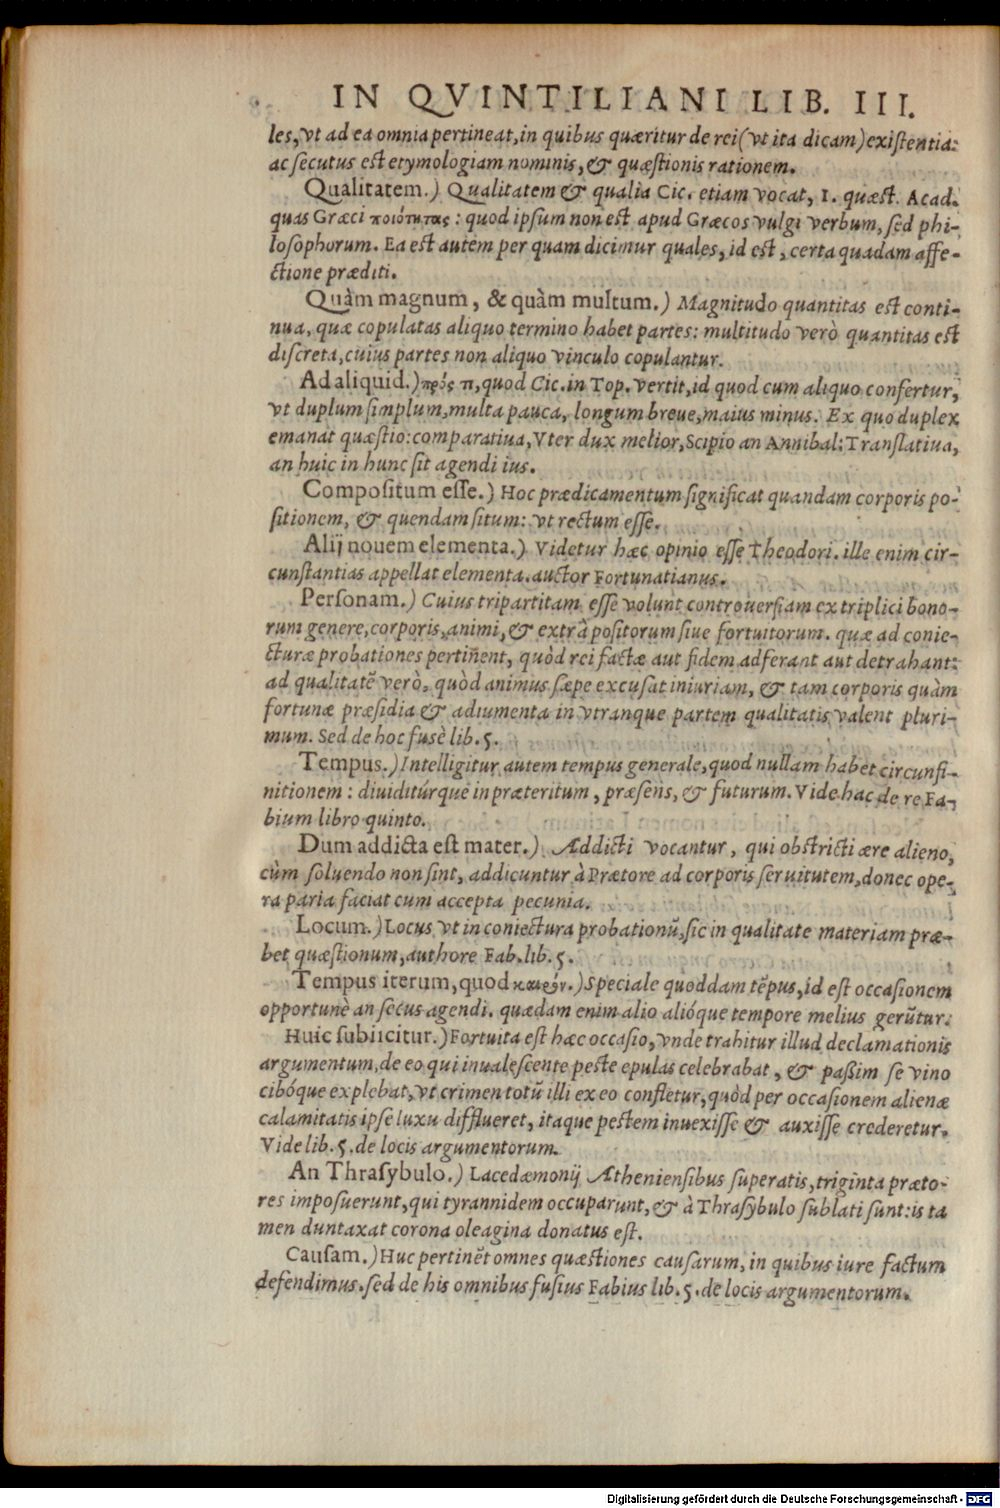 IN QVINTILIANI LIB. III.
les, vt ad ea omnia pertineat, in quibus quæritur de rei (vt ita dicam) existentia:
ac secutus est etymologiam nominis, & quæstionis rationem.
Qualitatem.) Qualitatem & qualia Cic. etiam vocat, 1. quæst. Acad.
quas Græci ποιότητας: quod ipsum non est apud Græcos vulgi verbum, sed phi-
losophorum. Ea est autem per quam dicimur quales, id est, certa quadam affe-
ctione præditi.
Quàm magnum, & quàm multum.) Magnitudo quantitas est conti-
nua, quæ copulatas aliquo termino habet partes: multitudo verò quantitas est
discreta, cuius partes non aliquo vinculo copulantur.
Ad aliquid.) πρός τι, quod Cic. in Top. vertit, id quod cum aliquo confertur,
vt duplum simplum, multa pauca, longum breue, maius minus. Ex quo duplex
emanat quæstio: comparatiua, Vter dux melior, Scipio an Annibal: Translatiua,
an huic in hunc sit agendi ius.
Compositum esse.) Hoc prædicamentum significat quandam corporis po-
sitionem, & quendam situm: vt rectum esse.
Alij nouem elementa.) Videtur hæc opinio esse Theodori. ille enim cir-
cunstantias appellat elementa. auctor Fortunatianus.
Personam.) Cuius tripartitam esse volunt controuersiam ex triplici bono-
rum genere, corporis, animi, & extrà positorum siue fortuitorum. quæ ad conie-
cturæ probationes pertinent, quòd rei factæ aut fidem adferant aut detrahant:
ad qualitatē verò, quòd animus sæpe excusat iniuriam, & tam corporis quàm
fortunæ præsidia & adiumenta in vtranque partem qualitatis valent pluri-
mum. Sed de hoc fusè lib. 5.
Tempus.) Intelligitur autem tempus generale, quod nullam habet circunfi-
nitionem: diuiditúrque in præteritum, præsens, & futurum. Vide hac de re Fa-
bium libro quinto.
Dum addicta est mater.) Addicti vocantur, qui obstricti ære alieno,
cùm soluendo non sint, addicuntur à Prætore ad corporis seruitutem, donec ope-
ra paria faciat cum accepta pecunia.
Locum.) Locus vt in coniectura probationū, sic in qualitate materiam præ-
bet quæstionum, authore Fab. lib. 5.
Tempus iterum, quod καιρόν.) Speciale quoddam tēpus, id est occasionem
opportunè an secus agendi. quædam enim alio alióque tempore melius gerūtur.
Huic subiicitur.) Fortuita est hæc occasio, vnde trahitur illud declamationis
argumentum, de eo qui inualescente peste epulas celebrabat, & passim se vino
cibóque explebat, vt crimen totū illi ex eo confletur, quòd per occasionem alienæ
calamitatis ipse luxu difflueret, itaque pestem inuexisse & auxisse crederetur.
Vide lib. 5. de locis argumentorum.
An Thrasybulo.) Lacedæmonij Atheniensibus superatis, triginta præto-
res imposuerunt, qui tyrannidem occuparunt, & à Thrasybulo sublati sunt: is ta
men duntaxat corona oleagina donatus est.
Causam.) Huc pertinēt omnes quæstiones causarum, in quibus iure factum
defendimus. sed de his omnibus fusius Fabius lib. 5. de locis argumentorum.
Digitalisierung gefördert durch die Deutsche Forschungsgemeinschaft - DFG